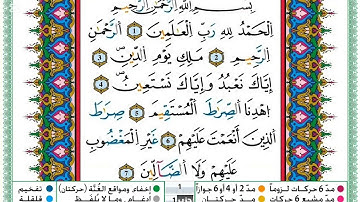 بِسْمِ اللَّهِ الرَّحْمَٰنِ الرَّحِيمِ
الْحَمْدُ لِلَّهِ رَبِّ الْعَالَمِينَ ١ الرَّحْمَٰنِ
الرَّحِيمِ ٢ مَلِكِ يَوْمِ الدِّينِ ٣
إِيَّاكَ نَعْبُدُ وَإِيَّاكَ نَسْتَعِينُ ٤
اهْدِنَا الصِّرَاطَ الْمُسْتَقِيمَ ٥ صِرَاطَ
الَّذِينَ أَنْعَمْتَ عَلَيْهِمْ ٦ غَيْرِ الْمَغْضُوبِ
عَلَيْهِمْ وَلَا الضَّالِّينَ ٧
مدّ 6 حركات لزوماً مدّ 2 أو 4 أو 6 جوازاً 1 إخفاء ومواقع الغُنَّة (حركتان) تفخيم
مدّ مشبع 6 حركات مدّ حركتان إدغام، وما لا يُلفَظ قلقلة